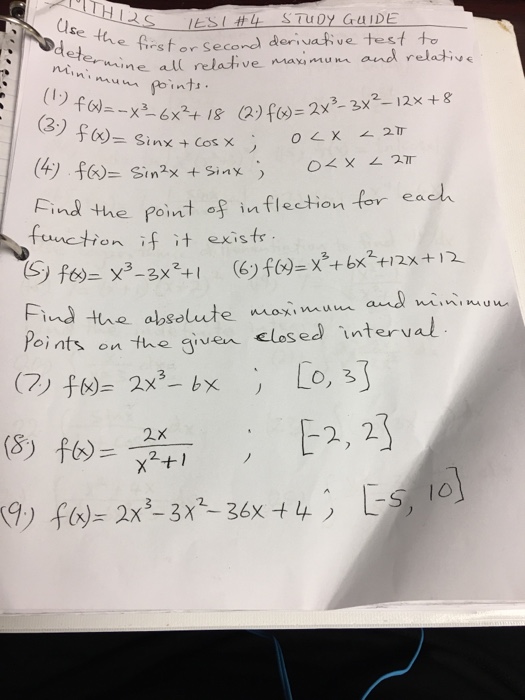 MTH125 TEST #4 STUDY GUIDE
Use the first or second derivative test to
determine all relative maximum and relative
minimum points.
(1.) f(x)= -x³-6x²+ 18 (2.) f(x)= 2x³-3x²-12x+8
(3.) f(x)= Sinx + Cos x ; 0 < x < 2π
(4.) f(x)= Sin²x + Sinx ; 0 < x < 2π
Find the point of inflection for each
function if it exists.
(5.) f(x)= x³-3x²+1 (6.) f(x)= x³+6x²+12x+12
Find the absolute maximum and minimum
Points on the given closed interval.
(7.) f(x)= 2x³-6x ; [0, 3]
(8.) f(x)= 2x/(x²+1) ; [-2, 2]
(9.) f(x)= 2x³-3x²-36x+4 ; [-5, 10]